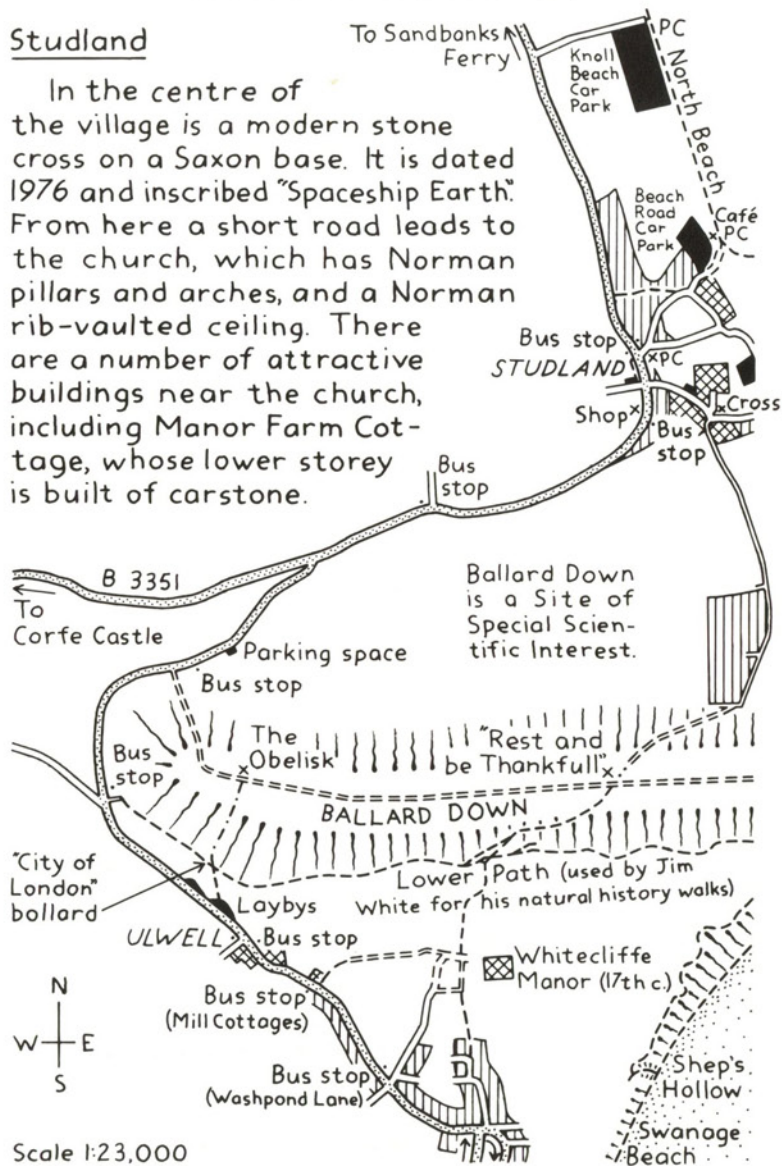 Studland
In the centre of
the village is a modern stone
cross on a Saxon base. It is dated
1976 and inscribed "Spaceship Earth".
From here a short road leads to
the church, which has Norman
pillars and arches, and a Norman
rib-vaulted ceiling. There
are a number of attractive
buildings near the church,
including Manor Farm Cot-
tage, whose lower storey
is built of carstone.
To Sandbanks
Ferry
PC
Knoll
Beach
Car
Park
North Beach
Beach
Road
Car
Park
Café
PC
Bus stop
PC
STUDLAND
Shop
Cross
Bus
stop
Bus
stop
B 3351
To
Corfe Castle
Ballard Down
is a Site of
Special Scien-
tific Interest.
Parking space
Bus stop
The
Obelisk
"Rest and
be Thankfull"
Bus
stop
BALLARD DOWN
"City of
London"
bollard
Lower Path (used by Jim
White for his natural history walks)
Laybys
ULWELL
Bus stop
Whitecliffe
Manor (17th c.)
Bus stop
(Mill Cottages)
N
W E
S
Bus stop
(Washpond Lane)
Shep's
Hollow
Swanage
Beach
Scale 1:23,000